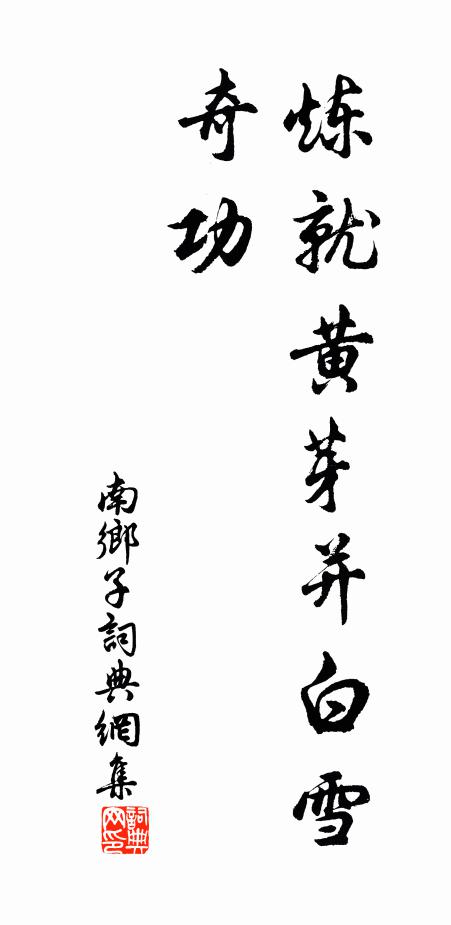 炼就黄芽并白雪
奇功
南鄉子詞典網集
詞典网印